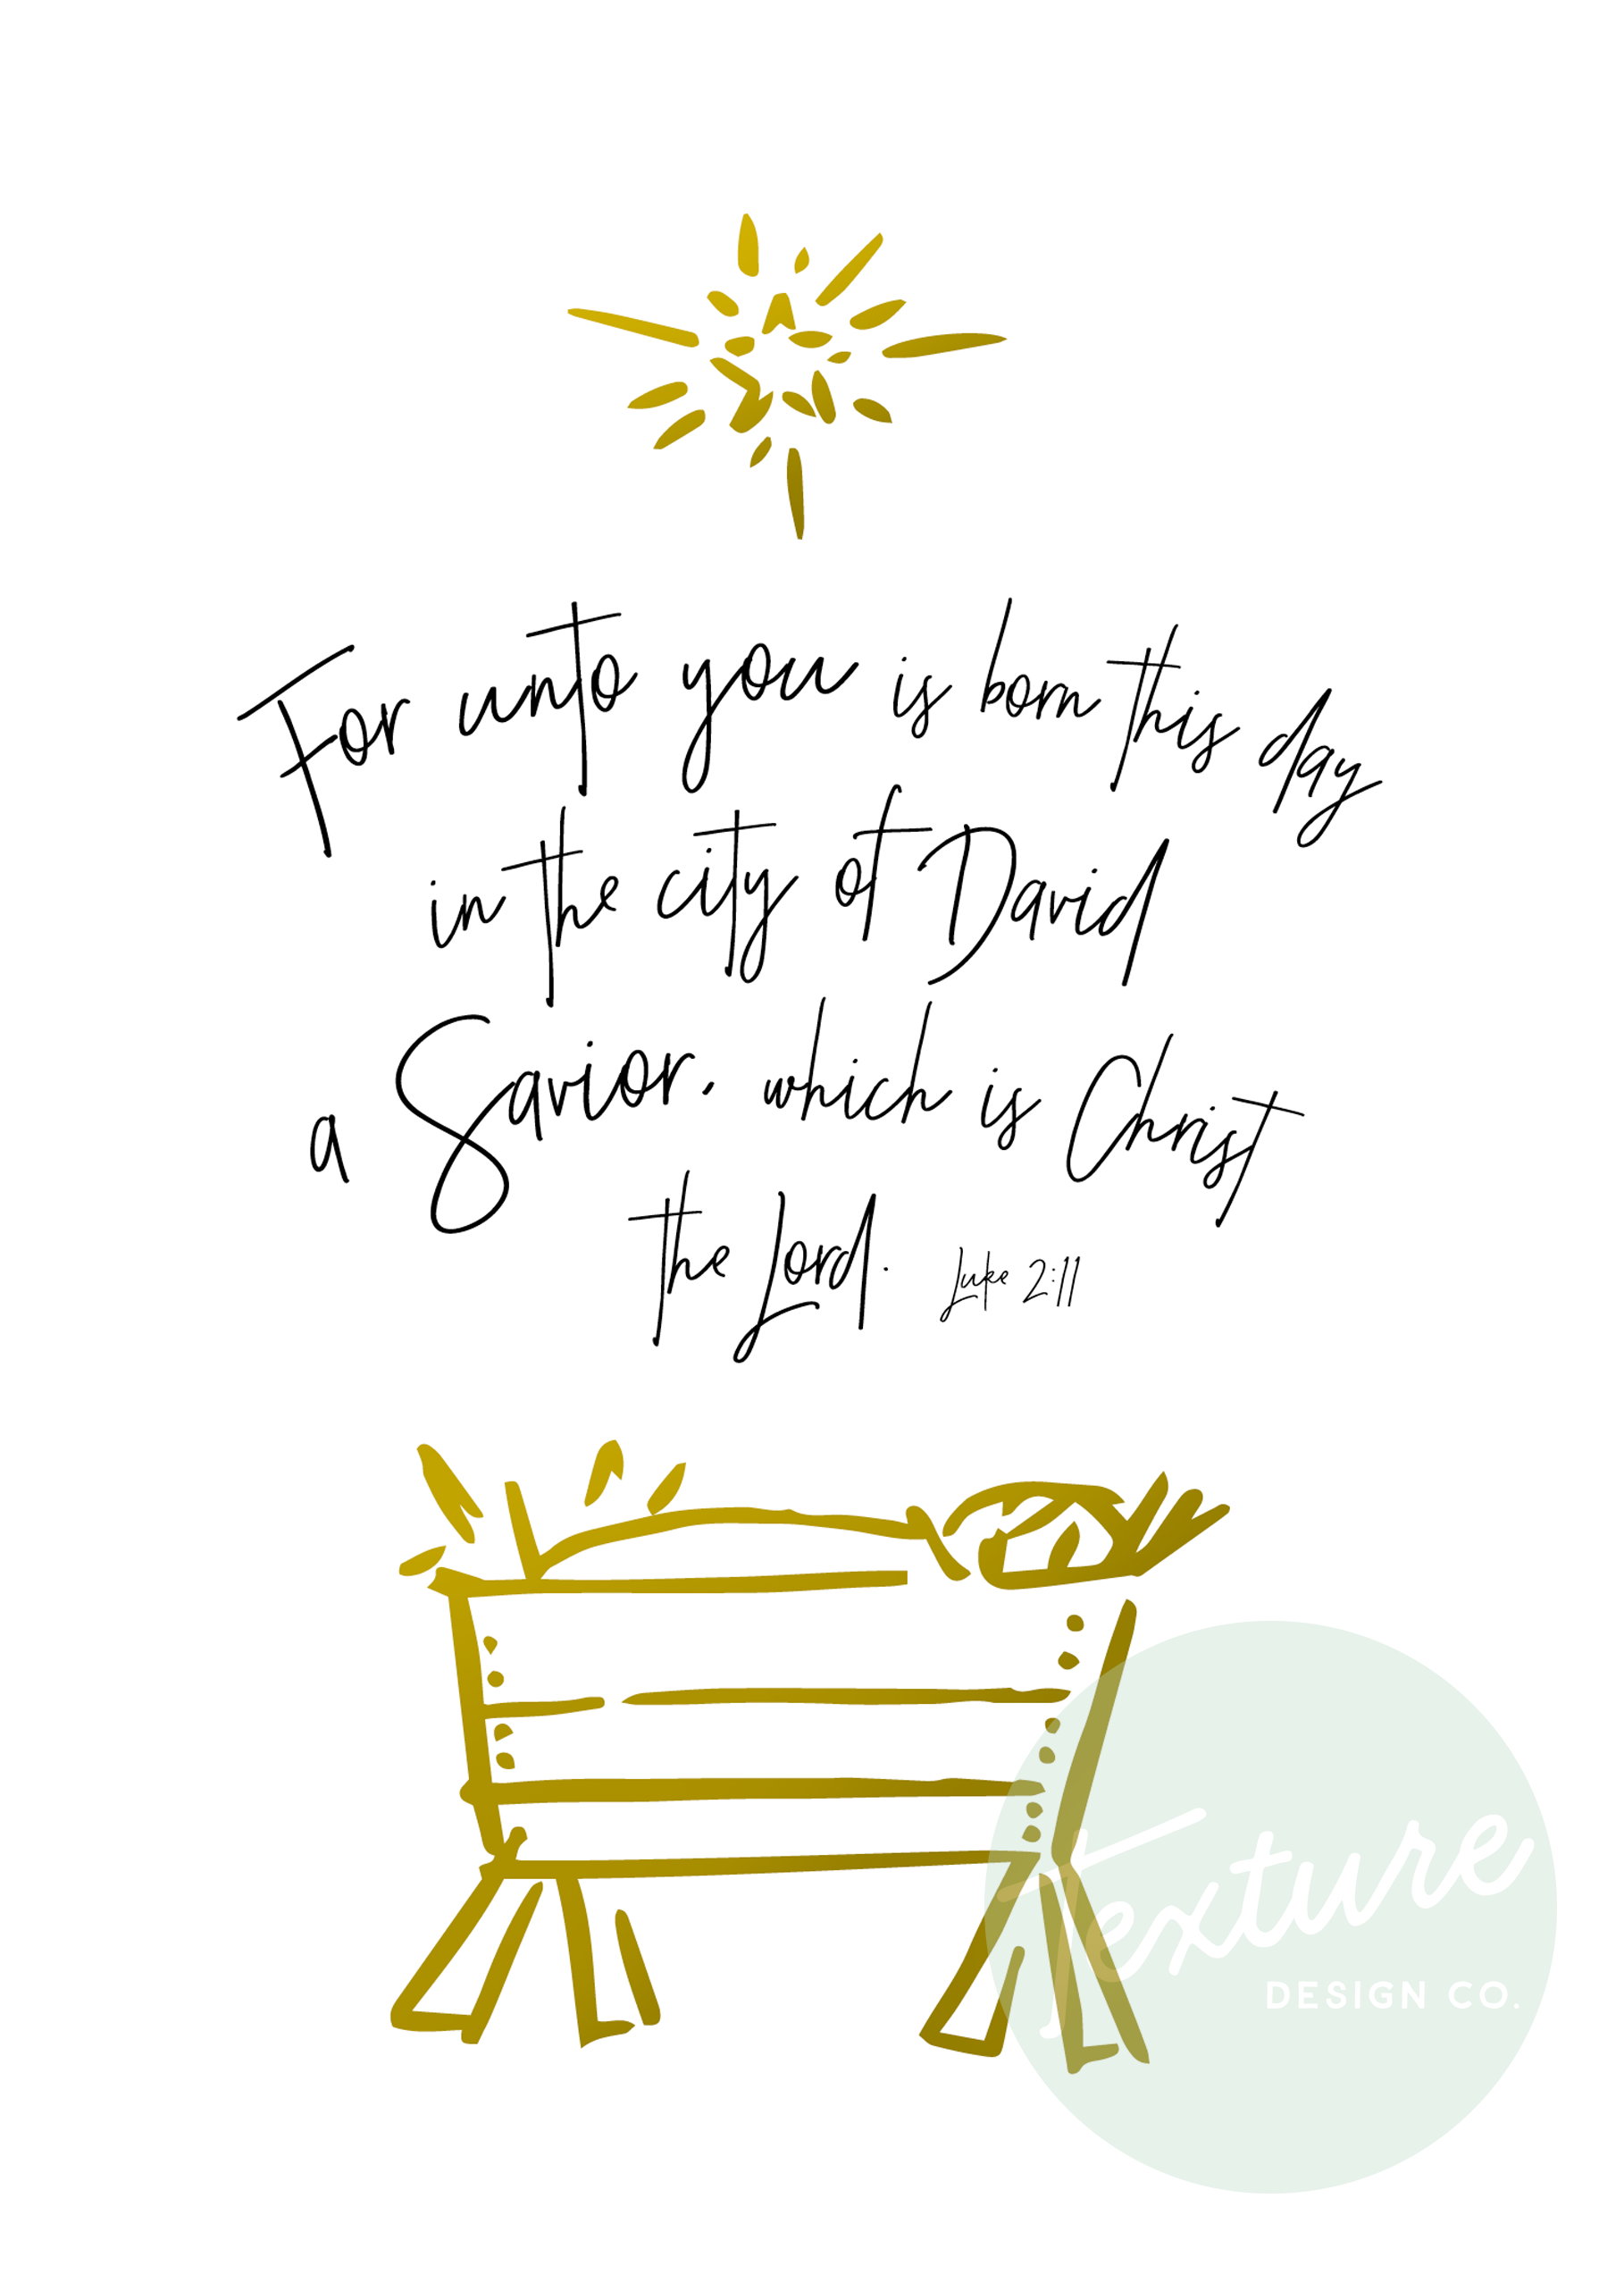 For unto you is born this day
in the city of David
a Savior, which is Christ
the Lord. Luke 2:11
Texture
DESIGN CO.